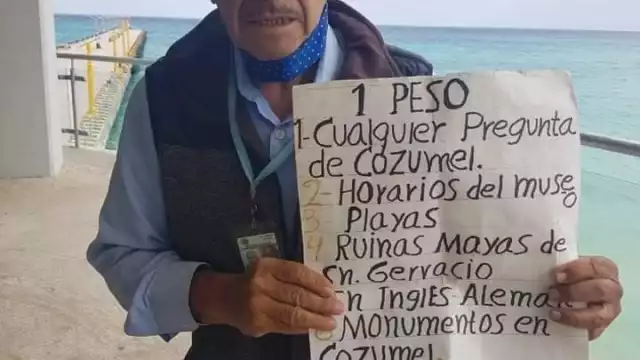 1 PESO
1-Cualquier Pregunta
de Cozumel.
2-Horarios del museo
3 Playas
4 Ruinas Mayas de
Sn. Gervacio
En INGLÉS-Alemán
6 Monumentos en
Cozumel.